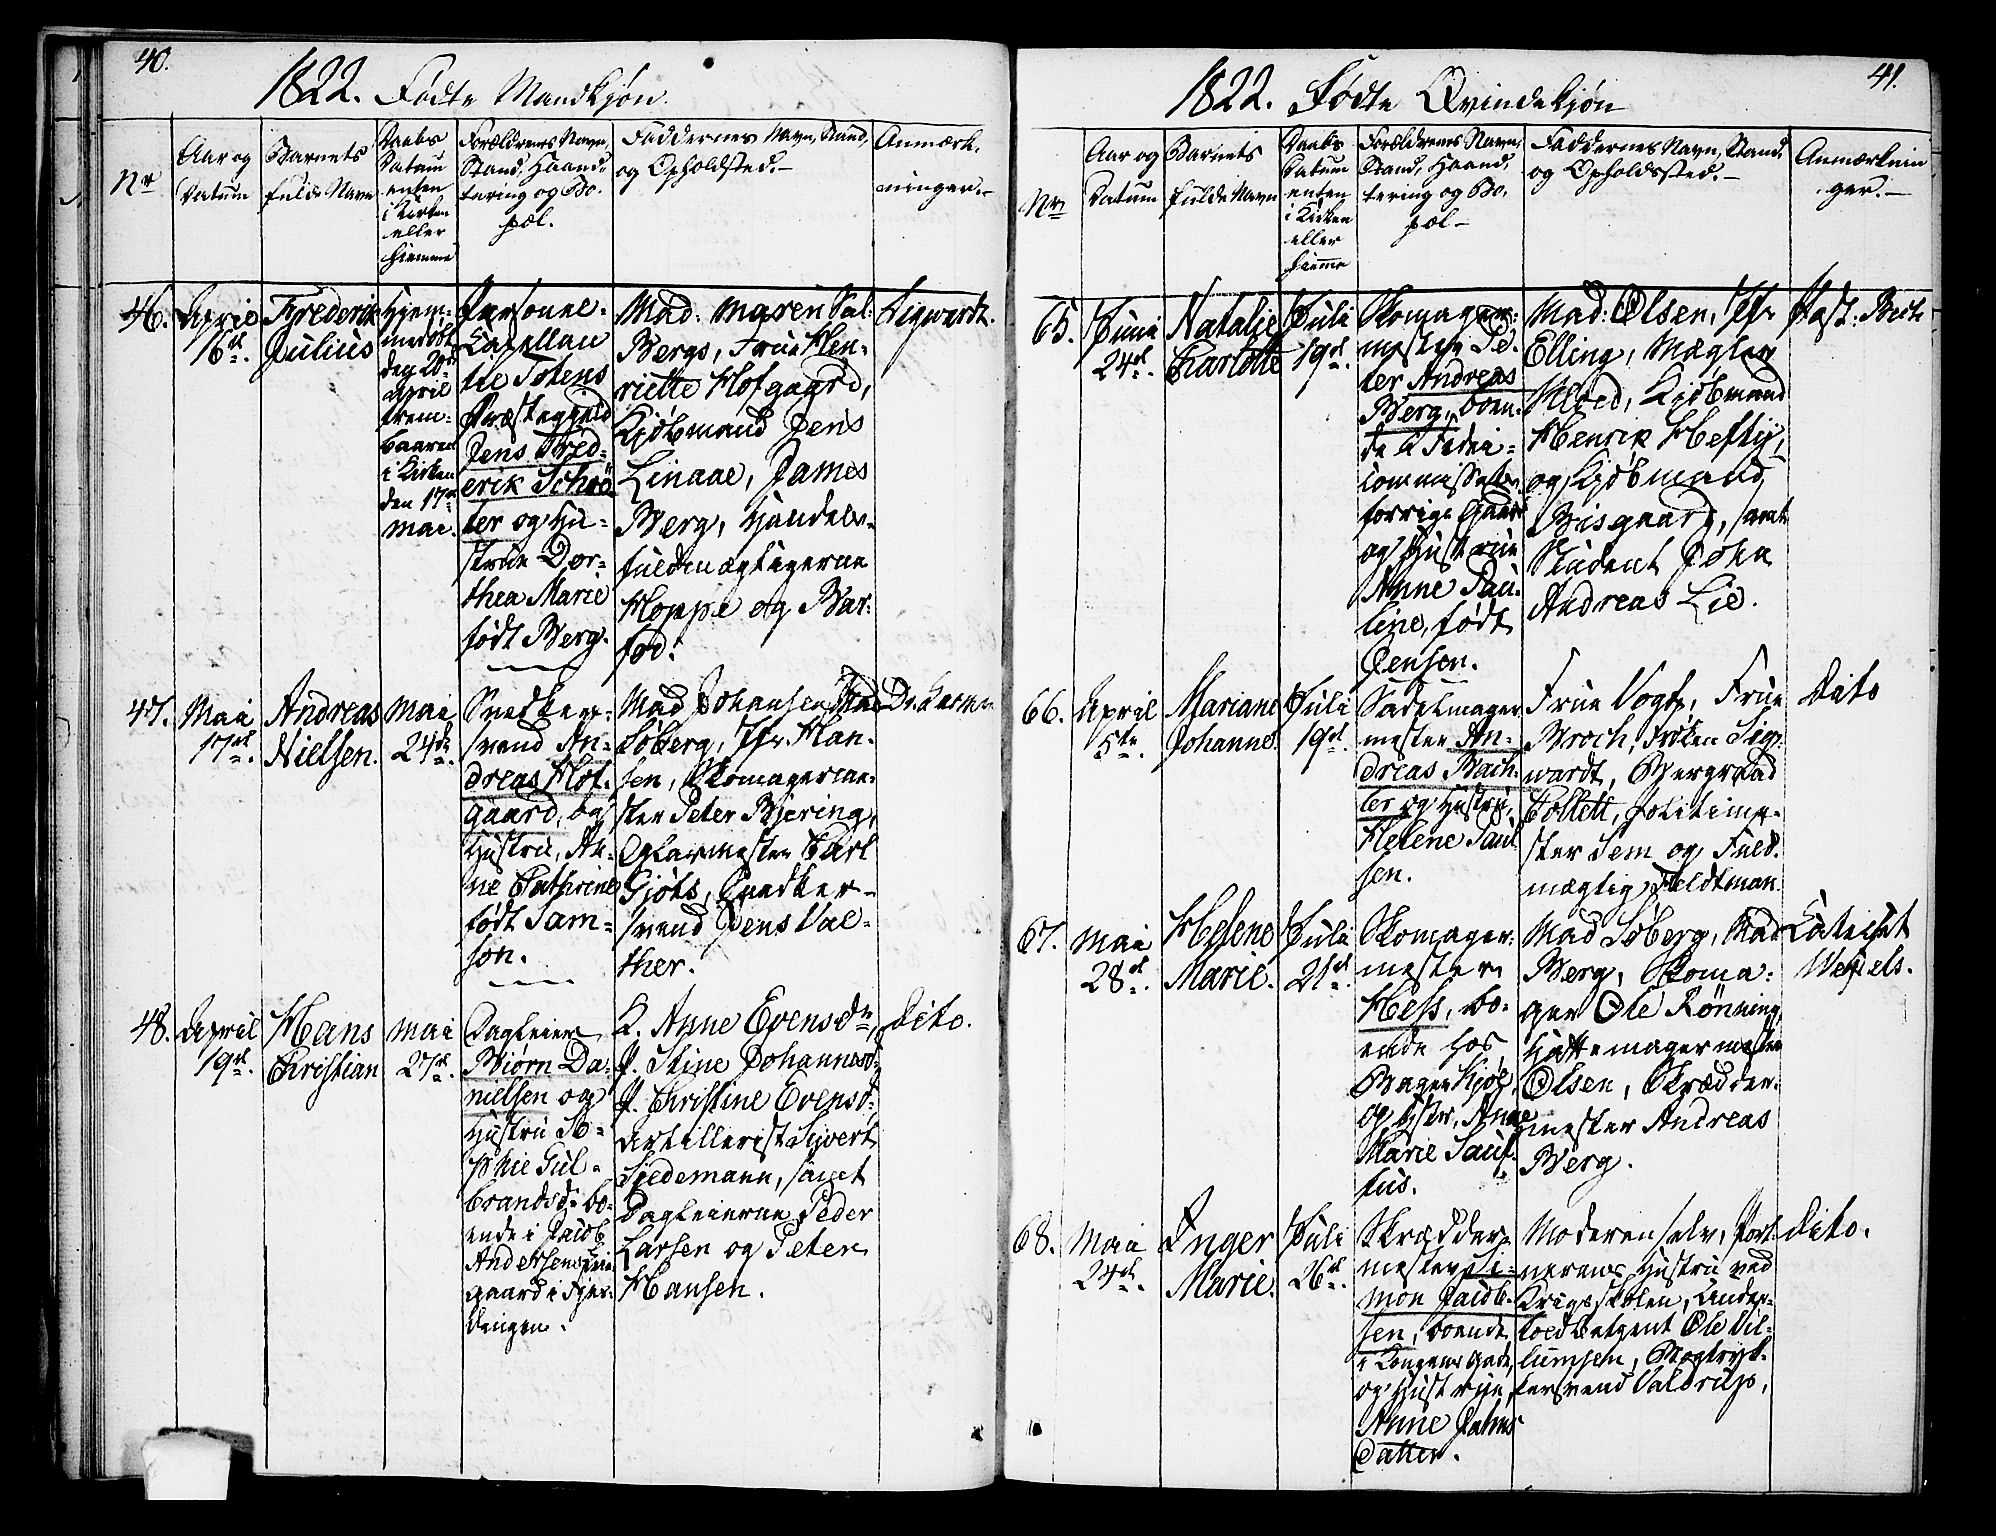 40.
1822. Fødte Mandkjøn.
Nr
Aar og
Datum
Barnets
fulde Navn
Daabs
Datum
enten
i Kirken
eller
hiemme
Forældrenes Navn,
Stand, Haand-
tering og Bo-
pæl.
Faddernes Navn, Stand,
og Opholdsted.-
Anmærk-
ninger.-
46.
April
16d.
Frederik
Julius
Hjem-
medøbt
den 20de
April
frem-
baaren
i Kirken
den 17de
Mai.
Personel-
Capellan
til Totens
Præstegjeld
Jens Fred-
erik Schrö-
ter og Hu-
strue Dor-
thea Marie
født Berg.
Mad. Maren Sal-
Bergs, Frue Hen-
riette Hofgaard,
Kjøbmand Jens
Linaae, James
Berg, Handels-
fuldmægtigerne
Hoppe og Bar-
fod.
Sigwardt.
47.
Mai
17de.
Andreas
Nielsen.
Mai
24de.
Snedker-
svend An-
dreas Hof-
gaard, og
Hustru, An-
ne Cathrine
født Sam-
son.
Mad Johansen, Mad
Soberg, Jfr Han-
sen, Skomagerme-
ster Peter Bjering,
Glarmester Carl
Gjøts, Snedker-
svend Jens Val-
ther.
48.
April
19d.
Hans
Christian
Mai
27de.
Dagleier
Biørn Da-
nielsen og
Hustru So-
phie Gul-
brandsd. bo-
ende i Jacob
Andersens
gaard i Fjer-
dingen.
K. Anne Evensdr,
P. Stine Johannesd.
P. Christine Evensd.
Artillerist Sivert
Siedemann, samt
Dagleierne Peder
Larsen og Peter
Hansen.
Dito.
41.
1822. Fødte Qvindekjøn
Nr
Aar og
Datum
Barnets
fulde Navn
Daabs
Datum
enten
i Kirken
eller
hiemme
Forældrenes Navn,
Stand, Haand-
tering og Bo-
pæl-
Faddernes Navn, Stand,
og Opholdssted.-
Anmærknin
ger.-
65.
Juni
24d.
Natalie
Carlotte
Juli
19d.
Skomager-
mester Pe-
ter Andreas
Berg, boen-
de i Fidei-
commis
forrige Gaard
og Hustrue
Anne Pau-
line, født
Jensen.
Mad: Olsen, Jfr
Elling, Mægler
Kjøbmand
Henrik Hefty,
og Kjøbmand
Bisgaard, samt
Student John
Andreas Lie.
Past: Bech
66.
April
5te.
Mariane
Johanne.
Juli
19d.
Sadelmager
mester An-
dreas Bach-
ler og Hustru,
Helene Paul
sen.
Frue Vogt, Frue
Broch, Frøken Sig-
wardt, Bergraad
Collett, Politime-
ster Sem og Fuld-
mægtig Feldtman.
Dito
67.
Mai
28d.
Helene
Marie.
Juli
21d.
Skomager-
mester
Hess, bo-
ende hos
Bager
og Hstr, Anne
Marie
Mad Soberg, Mad
Berg, Skoma-
ger Ole Rønning,
Hattemagermester
Olsen, Skrædder-
mester Andreas
Berg.
Catechet
Wexels.
68.
Mai
24d.
Inger
Marie.
Juli
26d.
Skrædder-
mester Si-
mon Jacob-
sen, boende
i Kongens Gade,
og Hustrue,
Anne Jahns
Datter.
Moderen selv, Port-
nerens Hustru ved
Krigsskolen, Under-
toldbetjent Ole Vil-
lumsen, Bogtryk-
kersvend Valdrup.
Dito.